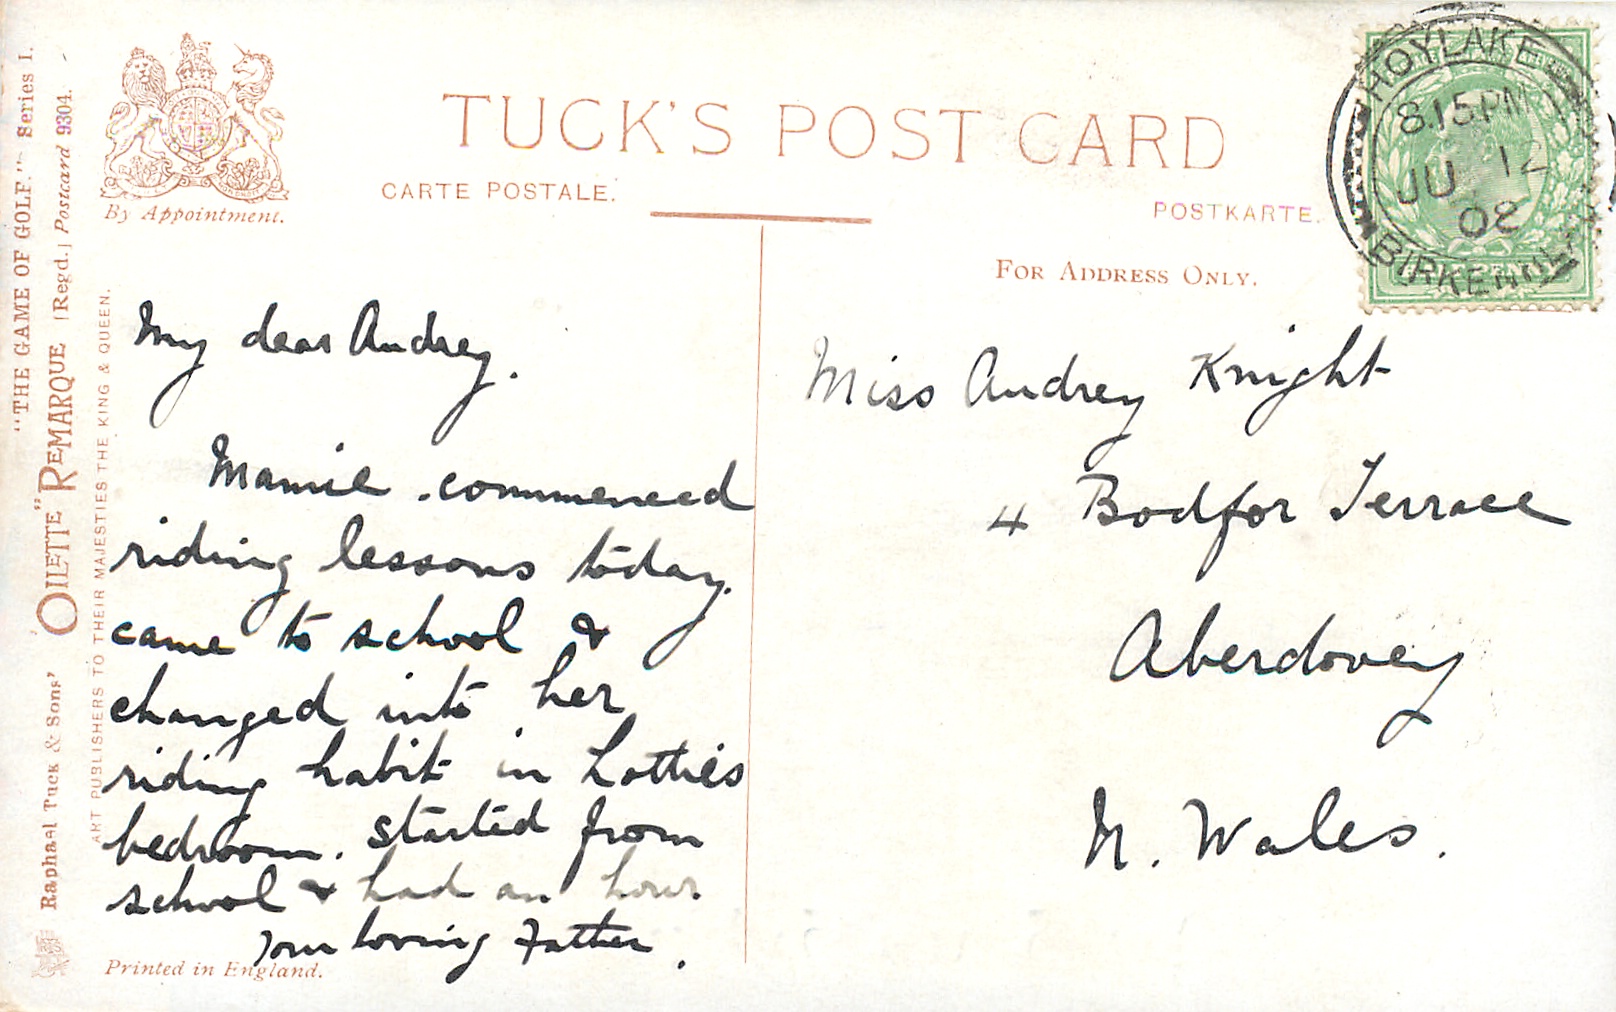 "THE GAME OF GOLF." Series I.
"OILETTE" REMARQUE [Regd.] Postcard 9304.
Raphael Tuck & Sons'
ART PUBLISHERS TO THEIR MAJESTIES THE KING & QUEEN.
By Appointment.
TUCK'S POST CARD
CARTE POSTALE.
POSTKARTE.
FOR ADDRESS ONLY.
HOYLAKE
8.15 PM
JU 12
08
BIRKENHEAD
My dear Audrey.
Mamie commenced
riding lessons today.
came to school &
changed into her
riding habit in Lotties
bedroom. Started from
school & had an hour.
Your loving Father.
Printed in England.
Miss Audrey Knight
4 Bodfor Terrace
Aberdovey
N. Wales.